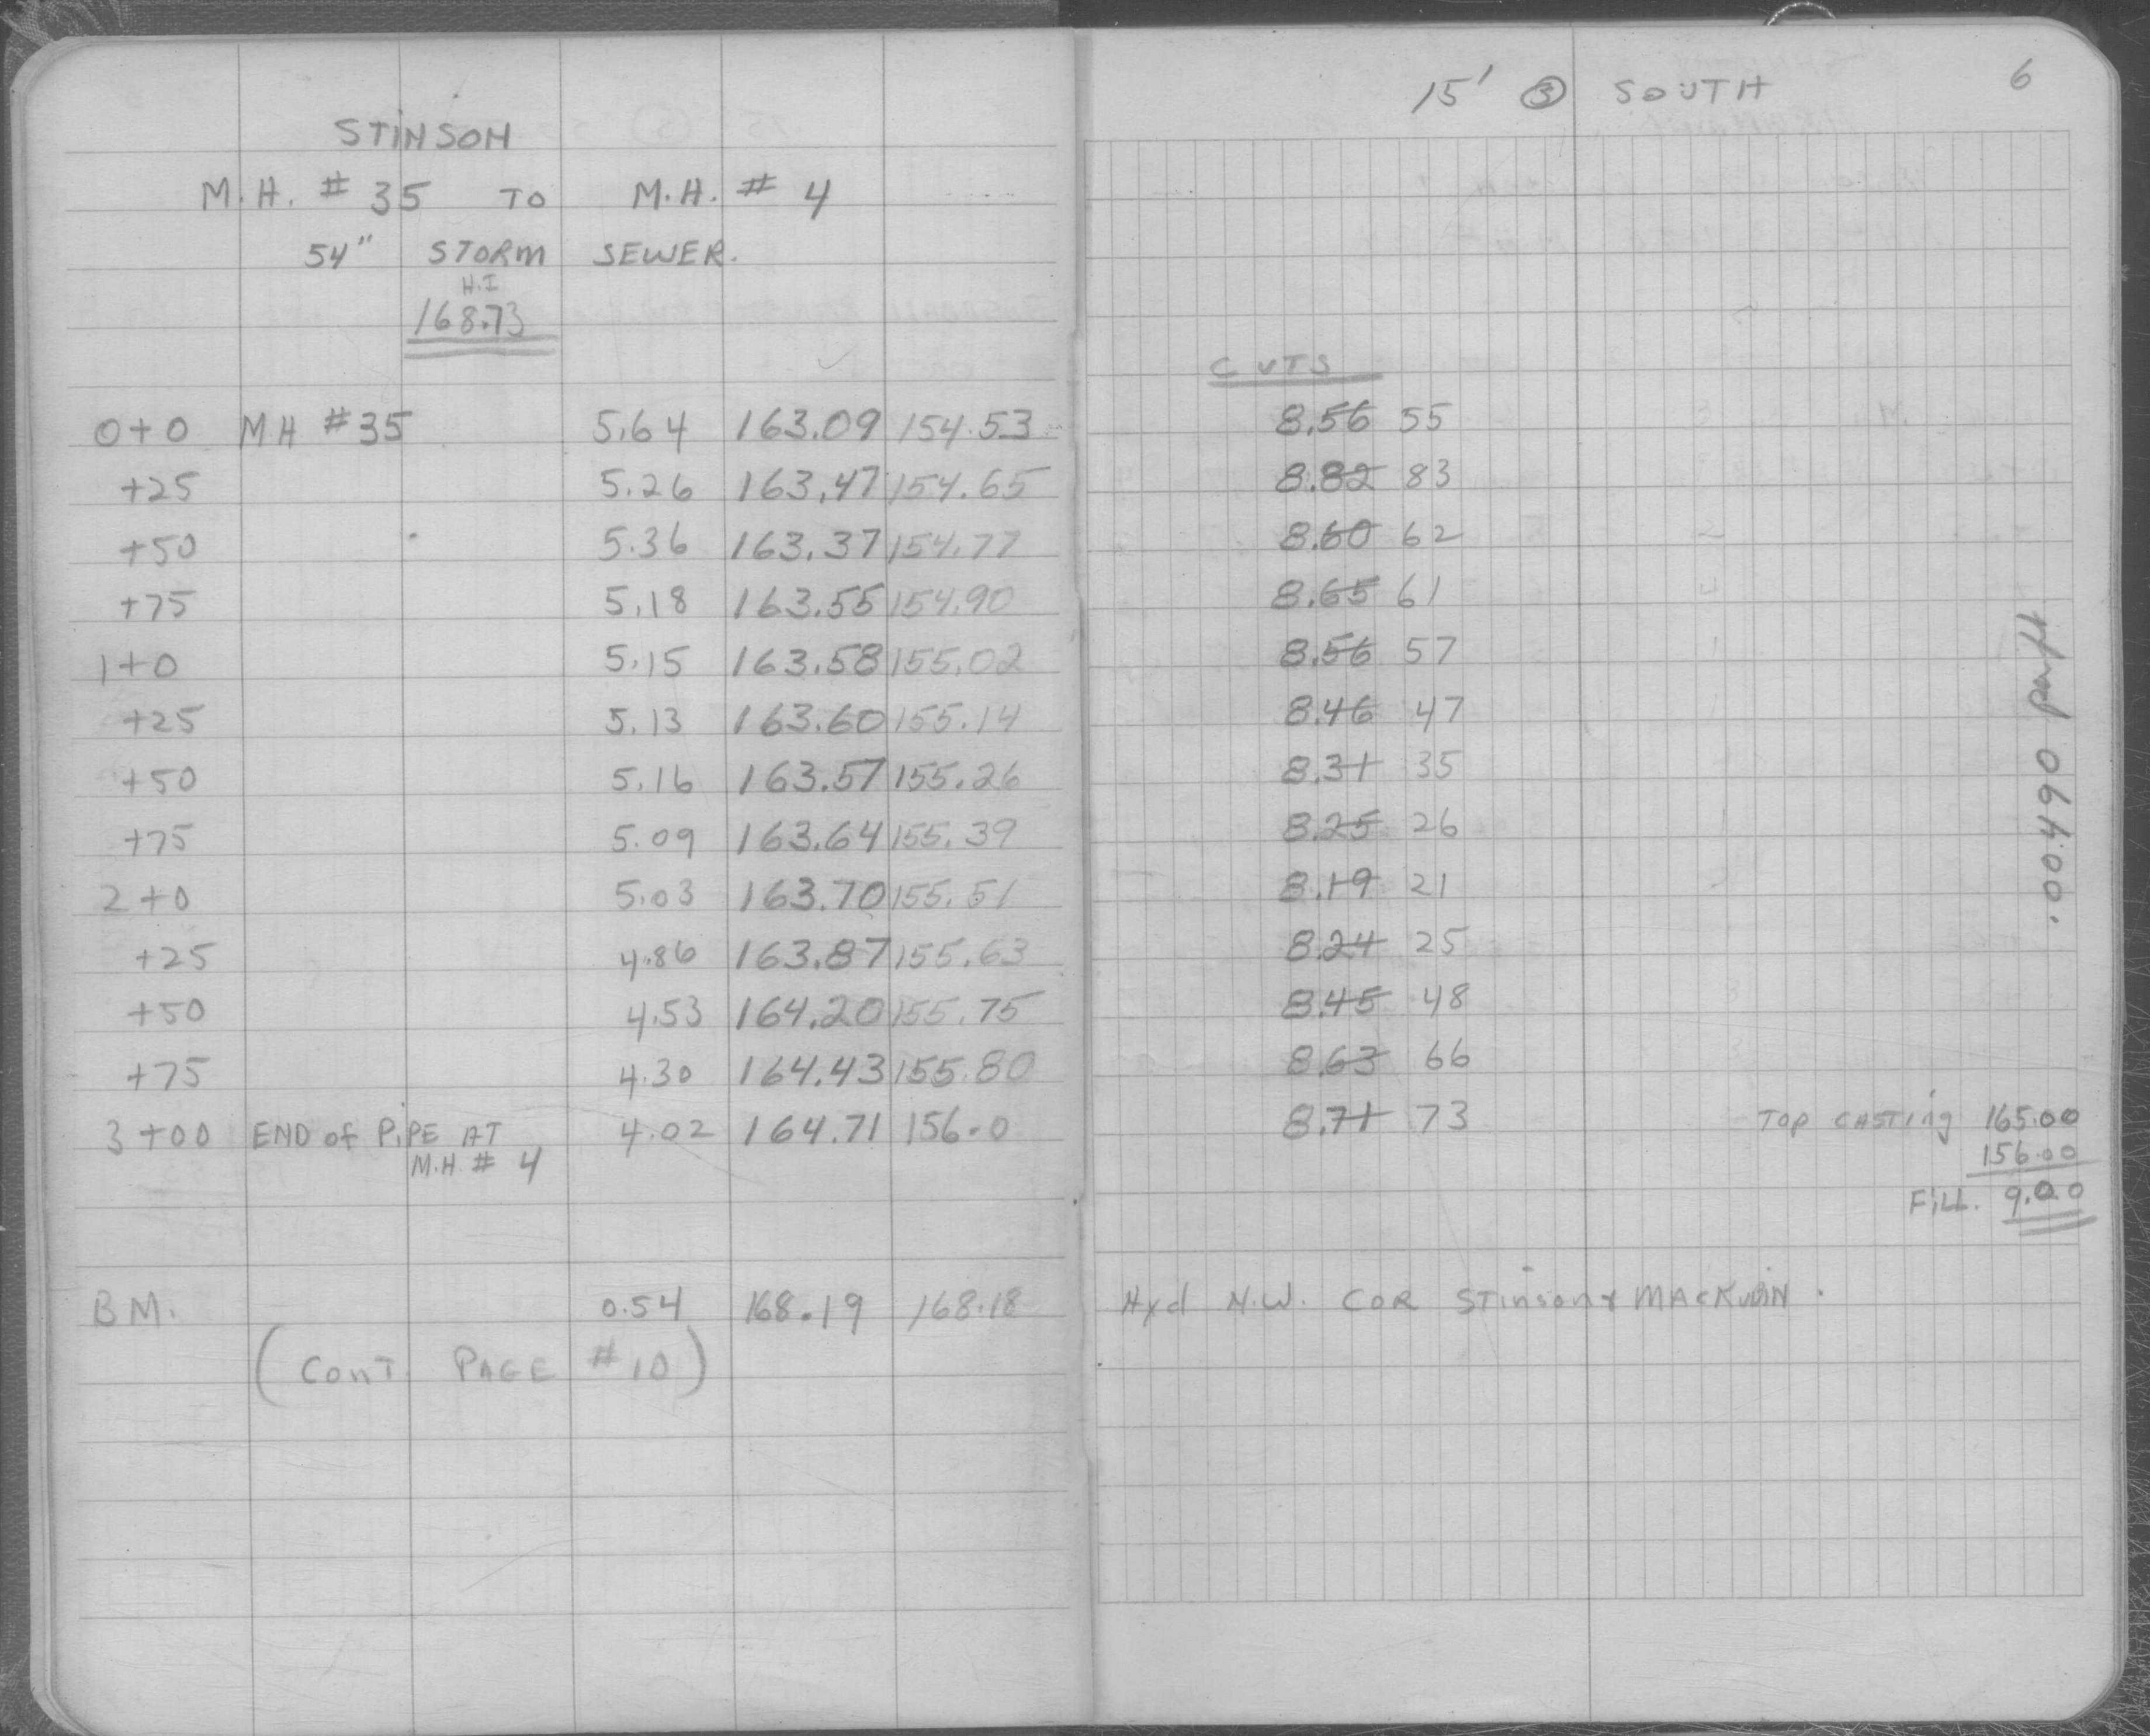 STINSON
M.H. # 35 TO M.H. # 4
54" STORM SEWER.
H.I
168.73
0+0 MH #35 5.64 163.09 154.53
+25 5.26 163.47 154.65
+50 5.36 163.37 154.77
+75 5.18 163.55 154.90
1+0 5.15 163.58 155.02
+25 5.13 163.60 155.14
+50 5.16 163.57 155.26
+75 5.09 163.64 155.39
2+0 5.03 163.70 155.51
+25 4.86 163.87 155.63
+50 4.53 164.20 155.75
+75 4.30 164.43 155.80
3+00 END of PIPE AT 4.02 164.71 156.0
M.H. # 4
BM. 0.54 168.19 168.18
(CONT. PAGE #10)
15' ③ SOUTH
6
CUTS
8.56 55
8.82 83
8.60 62
8.65 61
8.56 57
8.46 47
8.31 35
8.25 26
8.19 21
8.24 25
8.45 48
8.63 66
8.71 73
TOP CASTING 165.00
156.00
FILL. 9.00
Hyd N.W. COR STINSON & MACKUBIN.
00.490 per ft